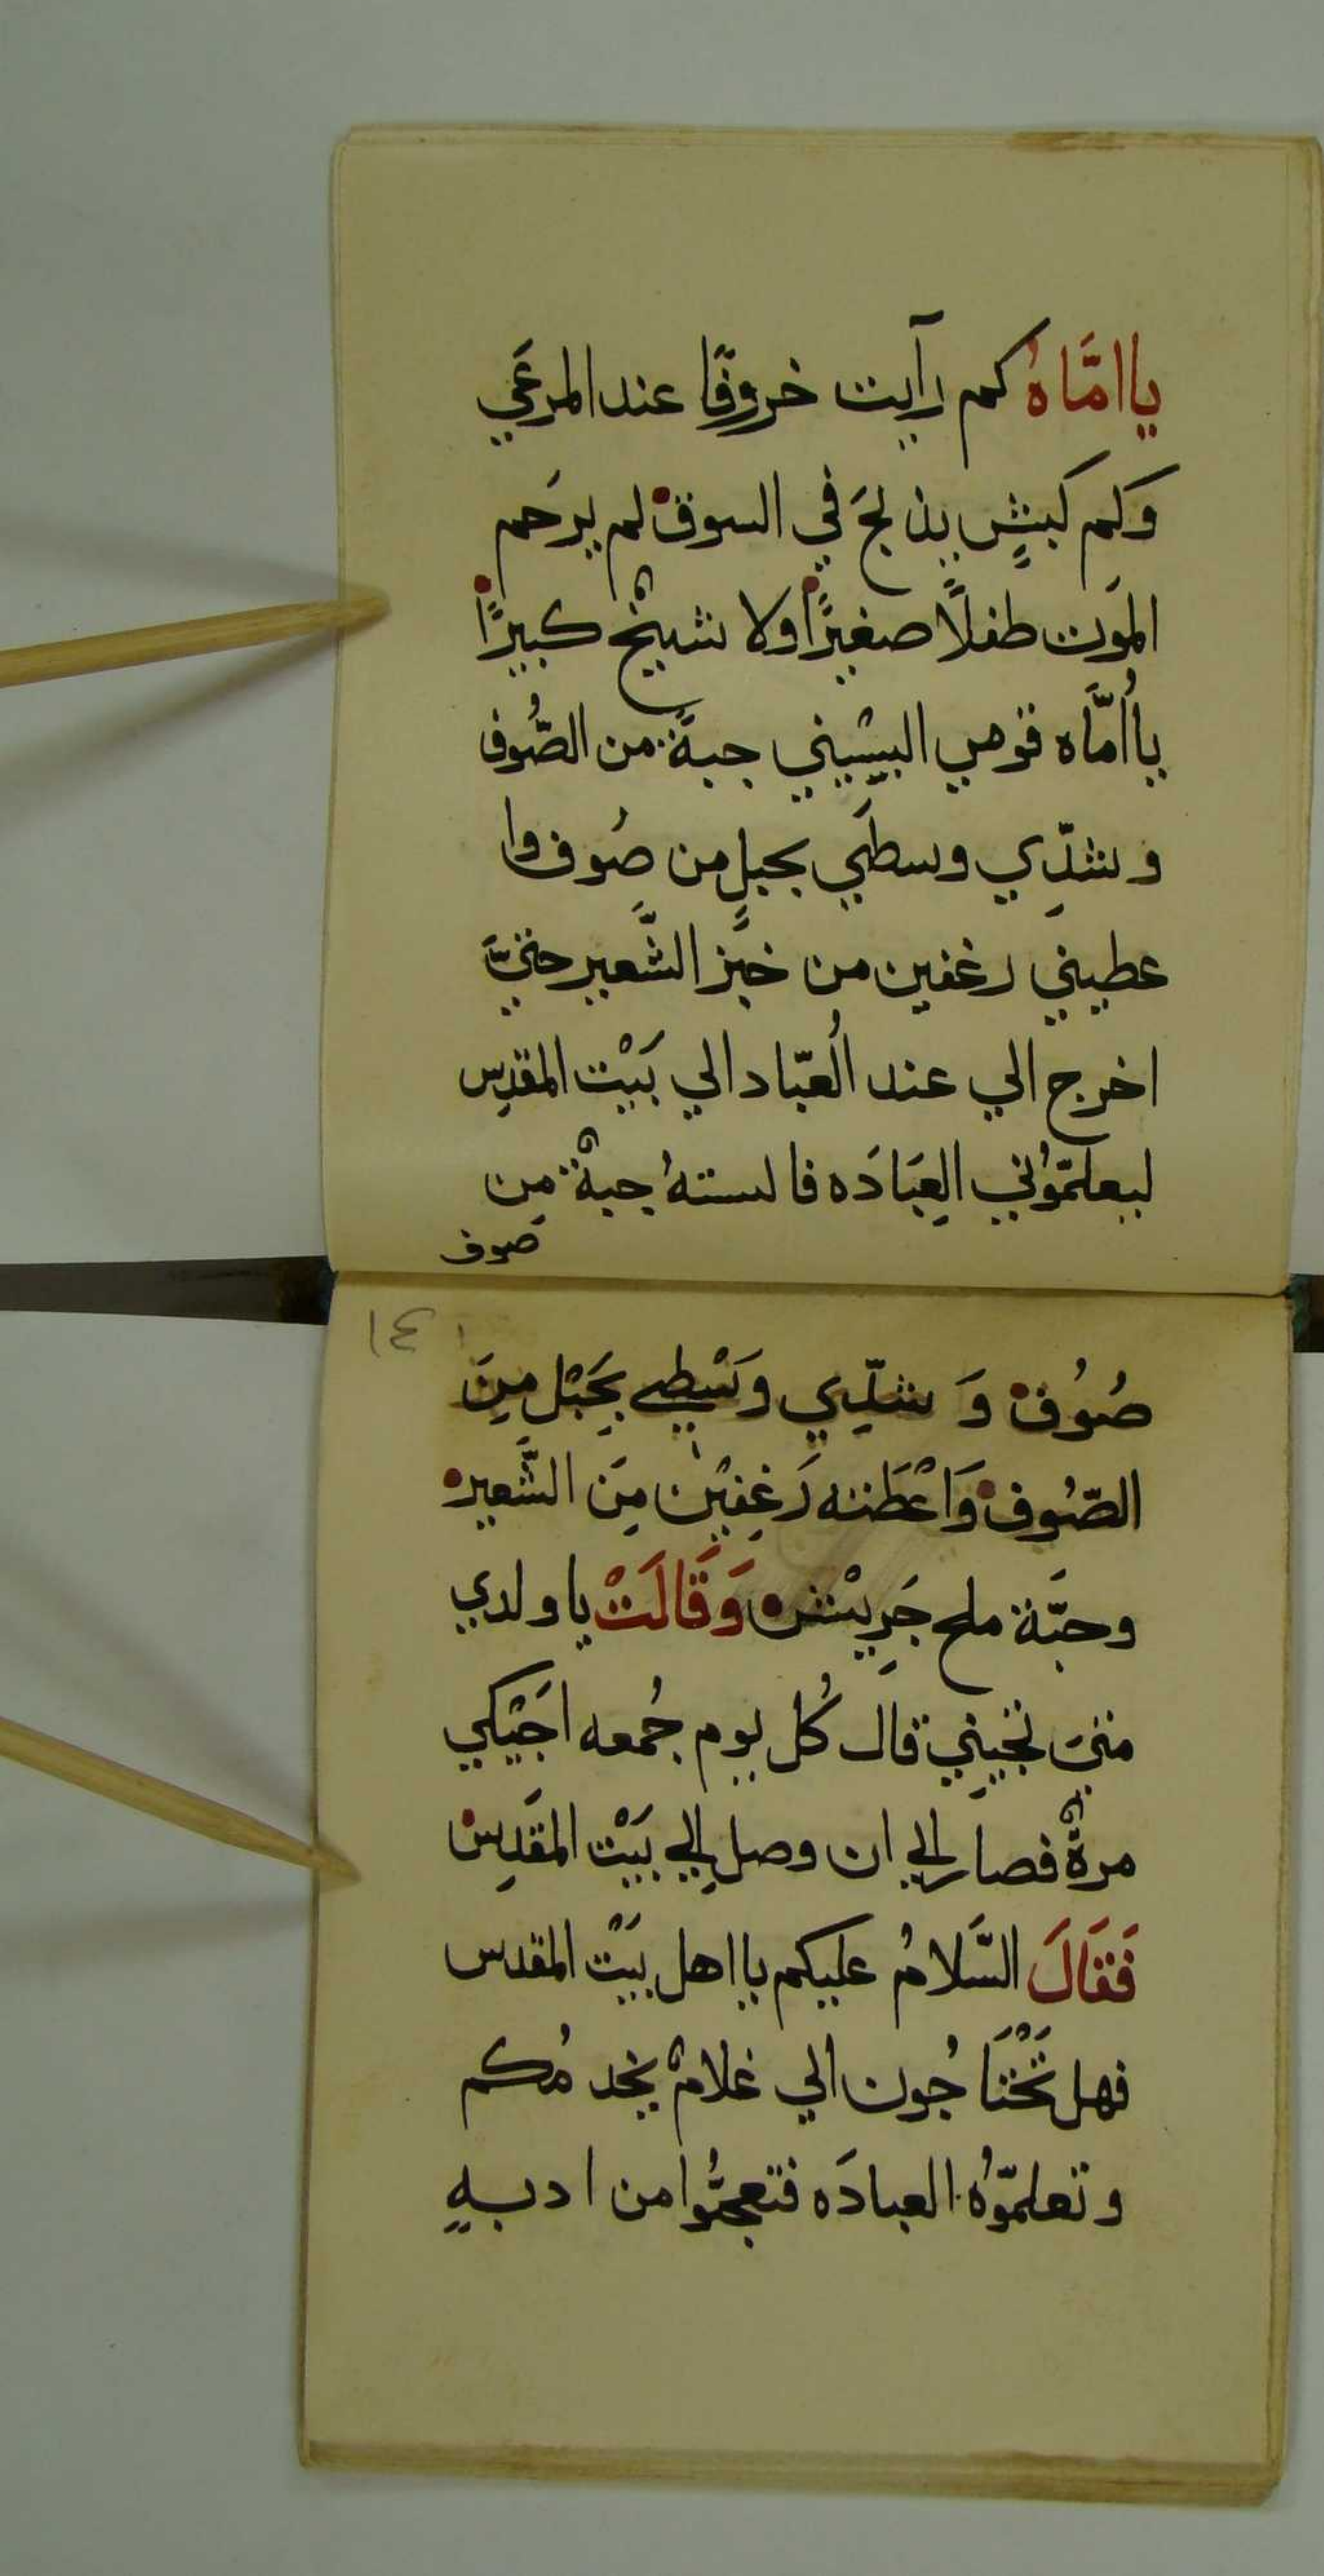 ياامَّاهُ كم رآيت خروفًا عند المرعَي
وَكَم كَبشٍ يذبحَ في السوق لم يرحَم
المَوت طفلًا صغيرًا ولا شيخٌ كبيرًا
ياأُمَّاه قومي البسيني جبةً من الصُّوف
وشدِّي وسطَي بحبلٍ من صُوف وا
عطيني رغفين من خبَز الشَّعير حتيَّ
اخرج الي عند العُبّاد الي بَيْت المقدِس
ليعلمّوُني العِبَادَه فالبستهُ جبةٌ من
صوف
١٤
صُوُف وَ شدِّي وَسْطِي بِحَبْل مِنَ
الصّوُف وَاعْطَته رَغِفيْن مِنَ الشَّعير
وحبَّة ملح جَرِيْش وَقَالَتْ ياولدي
متيَ تجيِني قال كُل يوم جُمعه اجَيْكي
مرةٌ فصار الي ان وصل إلي بَيْت المقَدِس
فَقَالَ السَّلامُ عليكم يااهل بَيْت المقدس
فهل تَحْتَاجُون الي غلامْ يخدمُكم
وتعلمّوُهُ العبادَه فتعجبُّوا من ادبهِ